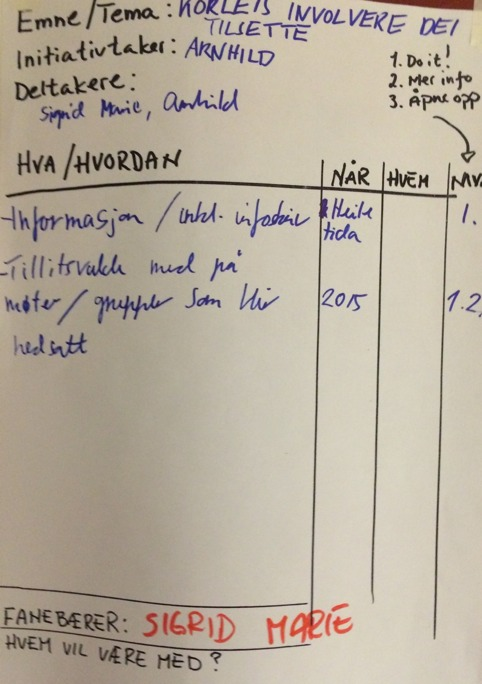 Emne/Tema: KORLEIS INVOLVERE DEI
TILSETTE
Initiativtaker: ARNHILD
Deltakere:
Sigrid Marie, Arnhild
1. Do it!
2. Mer info
3. Åpne opp
HVA/HVORDAN NÅR HVEM NIV.
-Informasjon / inkl. infoskriv Heile 1.
tida
-Tillitsvalde med på
møter/grupper som blir 2015 1.2,
nedsatt
FANEBÆRER: SIGRID MARIE
HVEM VIL VÆRE MED?